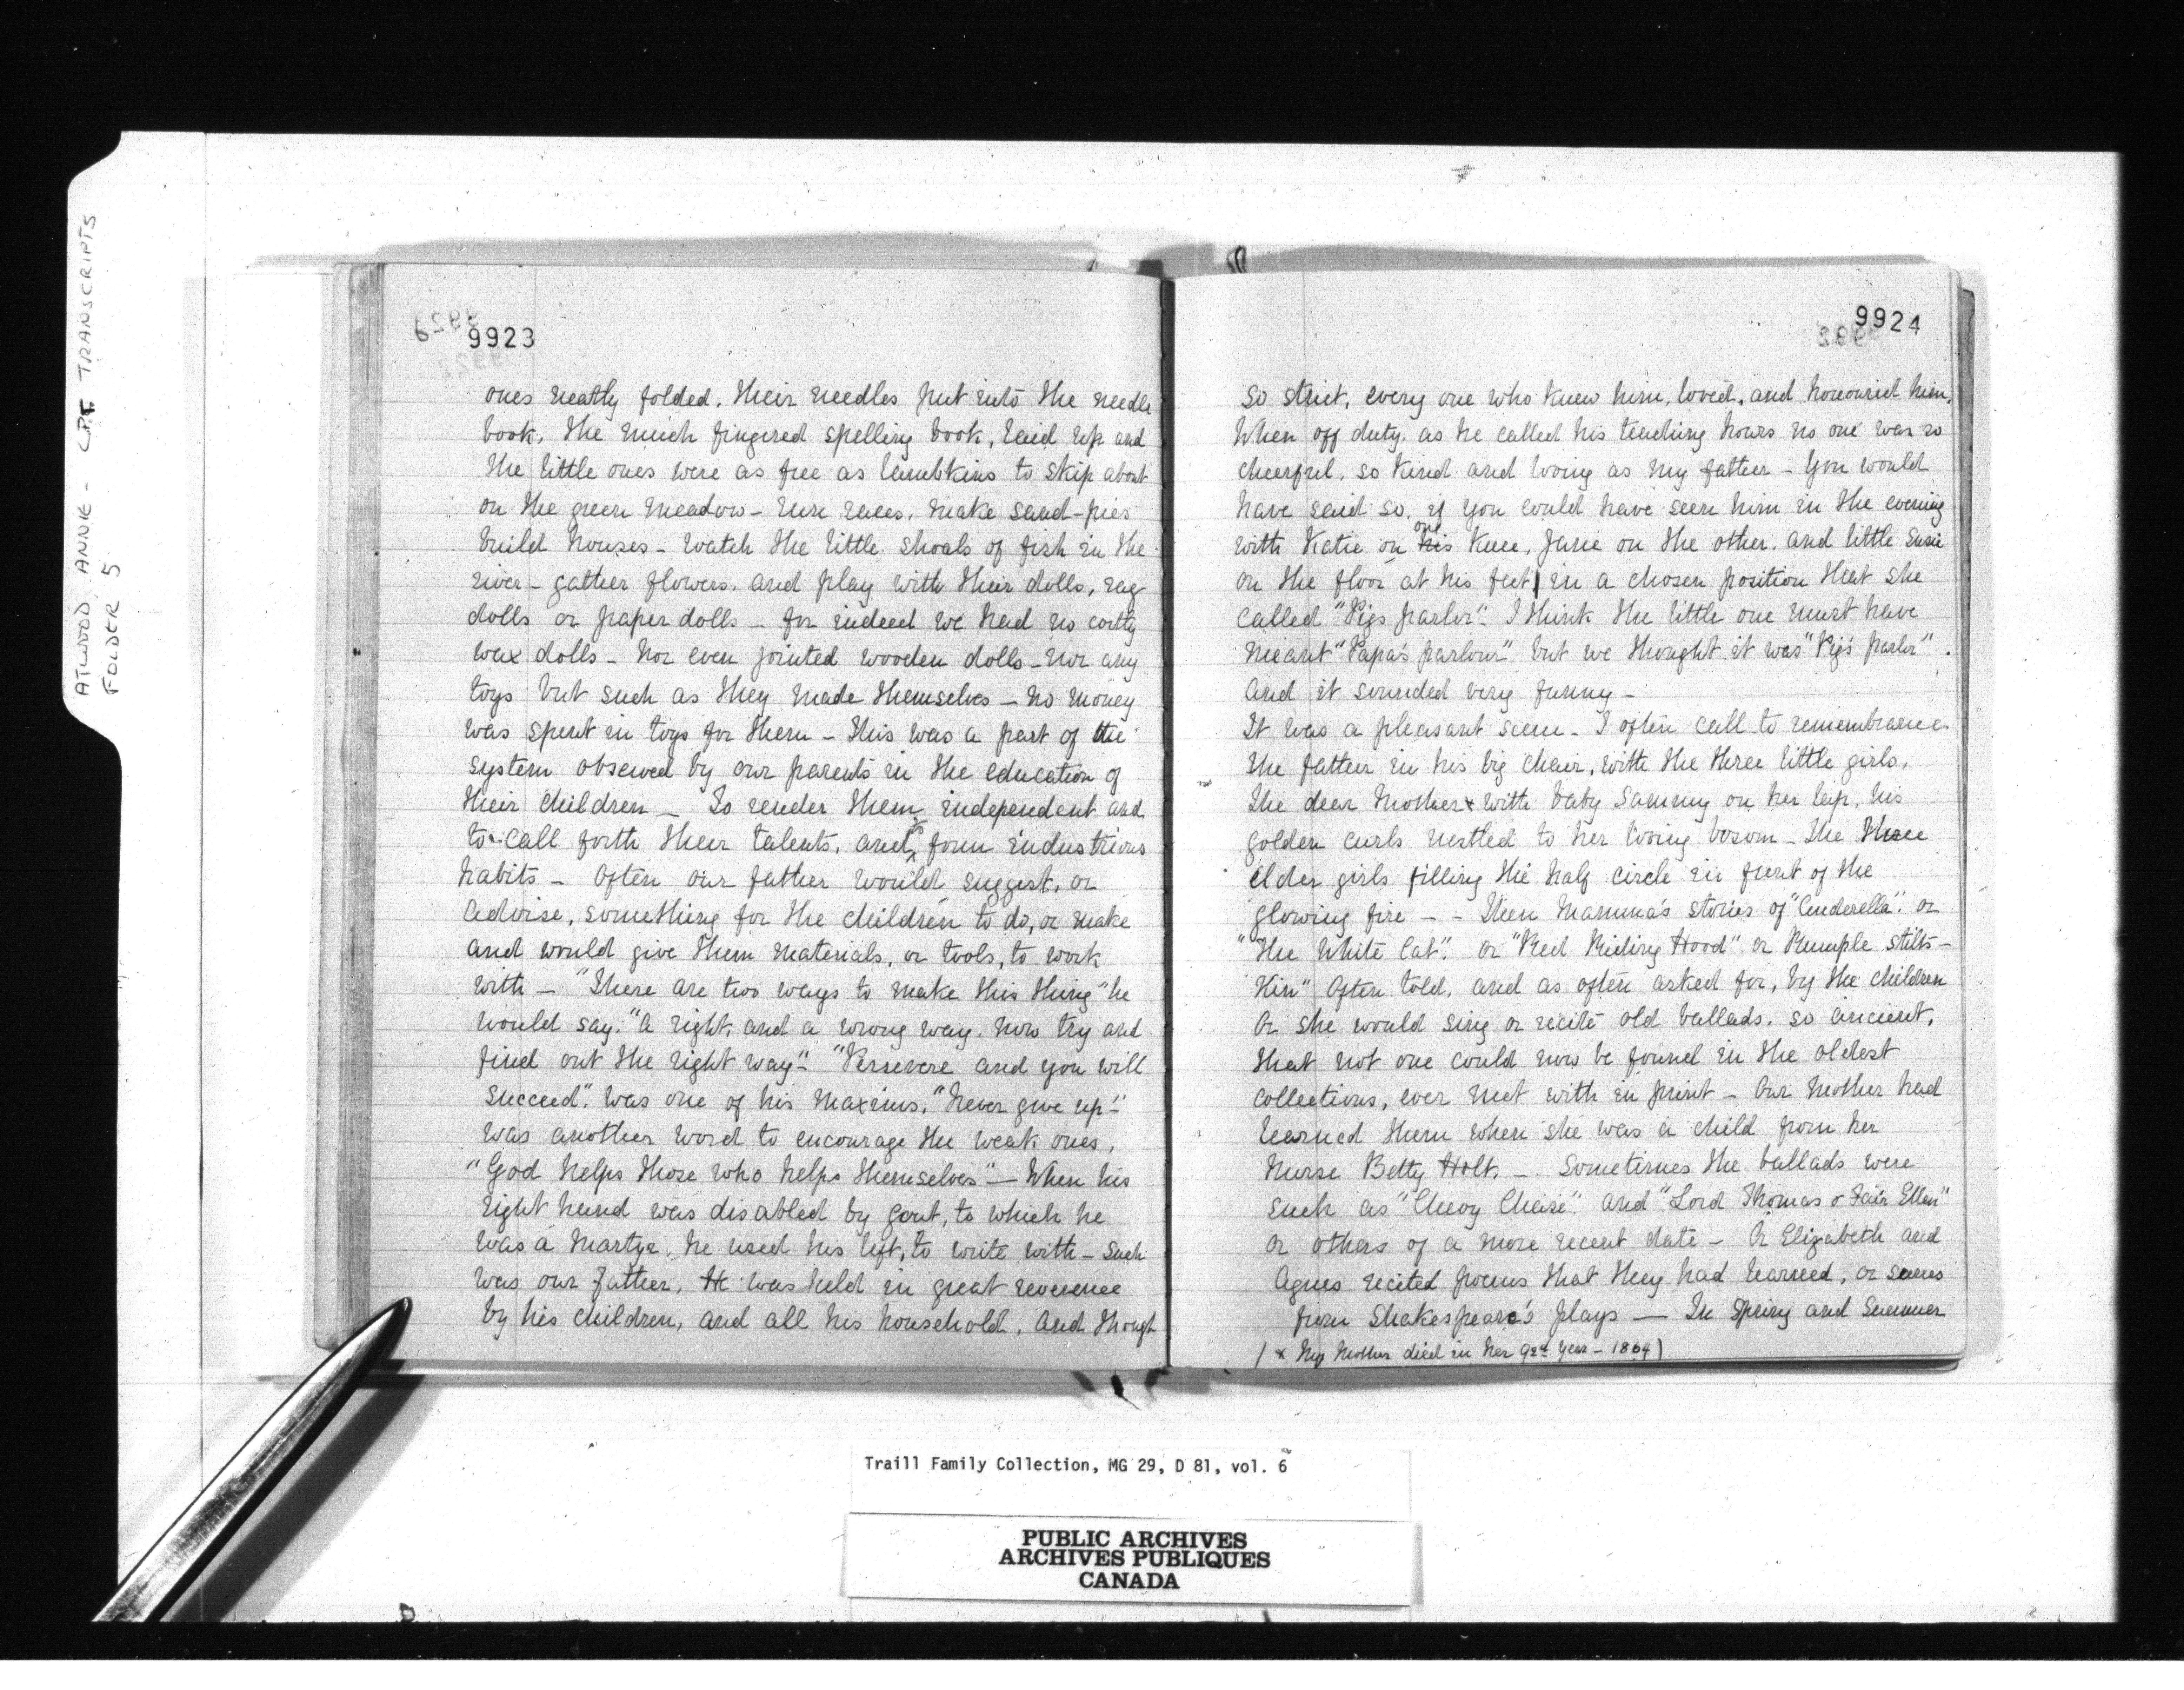 ATWOOD, ANNIE - C.P.T. TRANSCRIPTS
FOLDER 5
9923
ones neatly folded. Their needles put into the needle
book. The much fingered spelling book, laid up and
the little ones were as free as lambkins to skip about
on the green meadow - run races. make sand-pies
build houses - watch the little shoals of fish in the
river - gather flowers. and play with their dolls, rag
dolls or paper dolls - for indeed we had no costly
wax dolls - nor even jointed wooden dolls - nor any
toys but such as they made themselves - no money
was spent in toys for them - This was a part of the
system observed by our parents in the education of
their children - To render them independent and
to call forth their talents, and to form industrious
habits - Often our father would suggest, or
advise, something for the children to do, or make
and would give them materials, or tools, to work
with - "There are two ways to make this thing" he
would say. "a right and a wrong way. now try and
find out the right way" - "Persevere and you will
succeed". was one of his maxims. "Never give up" -
was another word to encourage the weak ones.
"God helps those who helps themselves" - When his
right hand was disabled by gout, to which he
was a martyr, he used his left, to write with - Such
was our father, He was held in great reverence
by his children, and all his household. And though
9924
so strict, every one who knew him, loved, and honourid him.
When off duty. as he called his teaching hours no one was so
cheerful. so kind and loving as my father - You would
have said so. if you could have seen him in the evening
with Katie on his one knee, Janie on the other. and little Susie
on the floor at his feet in a chosen position that she
called "Pigs parlor". I think the little one must have
meant "Papa's parlour" but we thought it was "Pig's parlor".
and it sounded very funny -
It was a pleasant scene - I often call to remembrance
the father in his big chair, with the three little girls.
The dear Mother x with baby Sammy on her lap, his
golden curls nestled to her loving bosom - The three
elder girls filling the half circle in front of the
glowing fire - - Then Mamma's stories of "Cinderella". or
"The White Cat". or "Red Riding Hood" or Rumple stilts-
kin" Often told, and as often asked for, by the children
Or she would sing or recite old ballads. so ancient,
that not one could now be found in the oldest
collections, ever met with in print - Our Mother had
learned them when she was a child from her
Nurse Betty Holt. - Sometimes the ballads were
such as "Chevy Chaise". and "Lord Thomas & Fair Ellen"
or others of a more recent date - Or Elizabeth and
Agnes recited poems that they had learned, or scenes
from Shakespeare's plays - In Spring and Summer
( x My Mother died in her 92nd year - 1864 )
Traill Family Collection, MG 29, D 81, vol. 6
PUBLIC ARCHIVES
ARCHIVES PUBLIQUES
CANADA